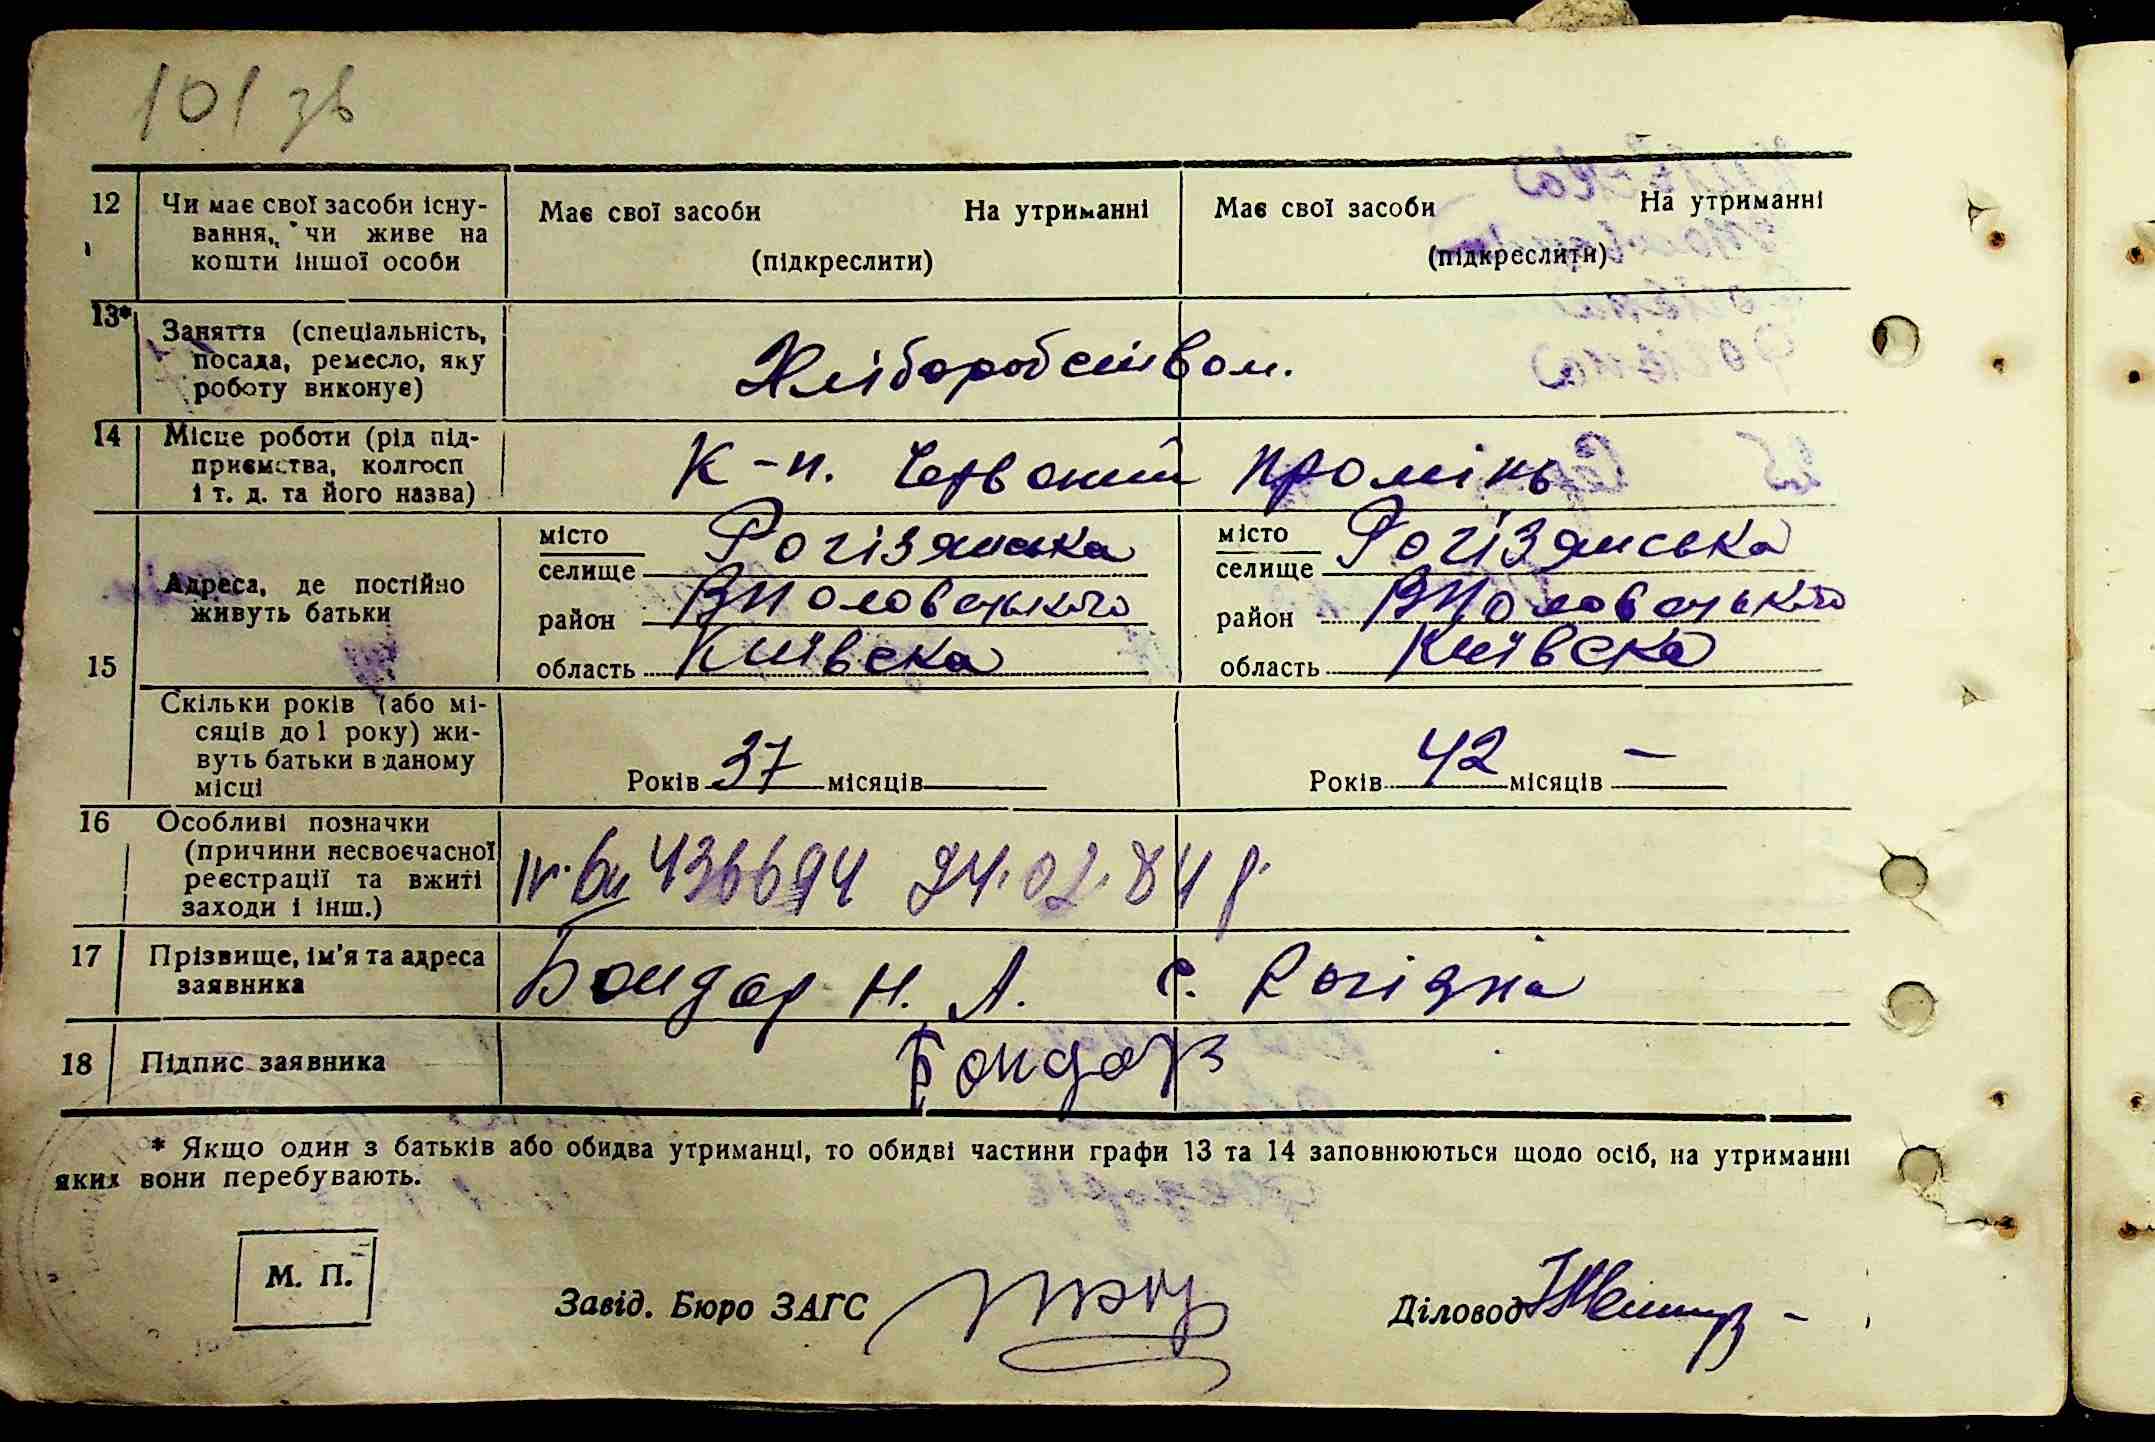 101 зв
12 Чи має свої засоби існу-
вання, чи живе на
кошти іншої особи
Має свої засоби На утриманні
(підкреслити)
Має свої засоби На утриманні
(підкреслити)
13* Заняття (спеціальність,
посада, ремесло, яку
роботу виконує)
Хліборобством.
14 Місце роботи (рід під-
приємства, колгосп
і т. д. та його назва)
К-п. Червоний промінь
15 Адреса, де постійно
живуть батьки
місто
селище Рогізянська
район Володарського
область Київска
місто
селище Рогізянська
район
область Київска
Скільки років (або мі-
сяців до 1 року) жи-
вуть батьки в даному
місці
Років 37 місяців
Років 42 місяців —
16 Особливі позначки
(причини несвоєчасної
реєстрації та вжиті
заходи і інш.)
436694 24.02.84 р.
17 Прізвище, ім'я та адреса
заявника
Бондар Н. А. с. Рогізна
18 Підпис заявника
Бондар
* Якщо один з батьків або обидва утриманці, то обидві частини графи 13 та 14 заповнюються щодо осіб, на утриманні
яких вони перебувають.
М. П.
Завід. Бюро ЗАГС
Діловод